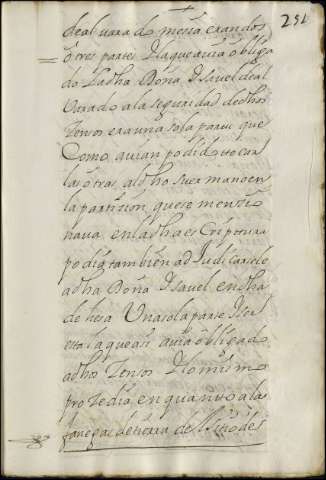 291
de alvarado mesia eran dos
o tres partes y la que avia obliga
do la dha Doña Isavel de al
varado a la seguridad de dhos
zensos era una sola parte que
Como avian podido tocar
las otras al dho su ermano en
la partision que se mensio
nava en la dha escriptura
podia tambien adjudicarsele
a dha Doña Isavel en dha
dehesa Una sola parte y ser
esta la que asi avia obligado
a dhos zensos y lo mismo
prozedia en quanto a las
fanegas de tierra del sitio de s